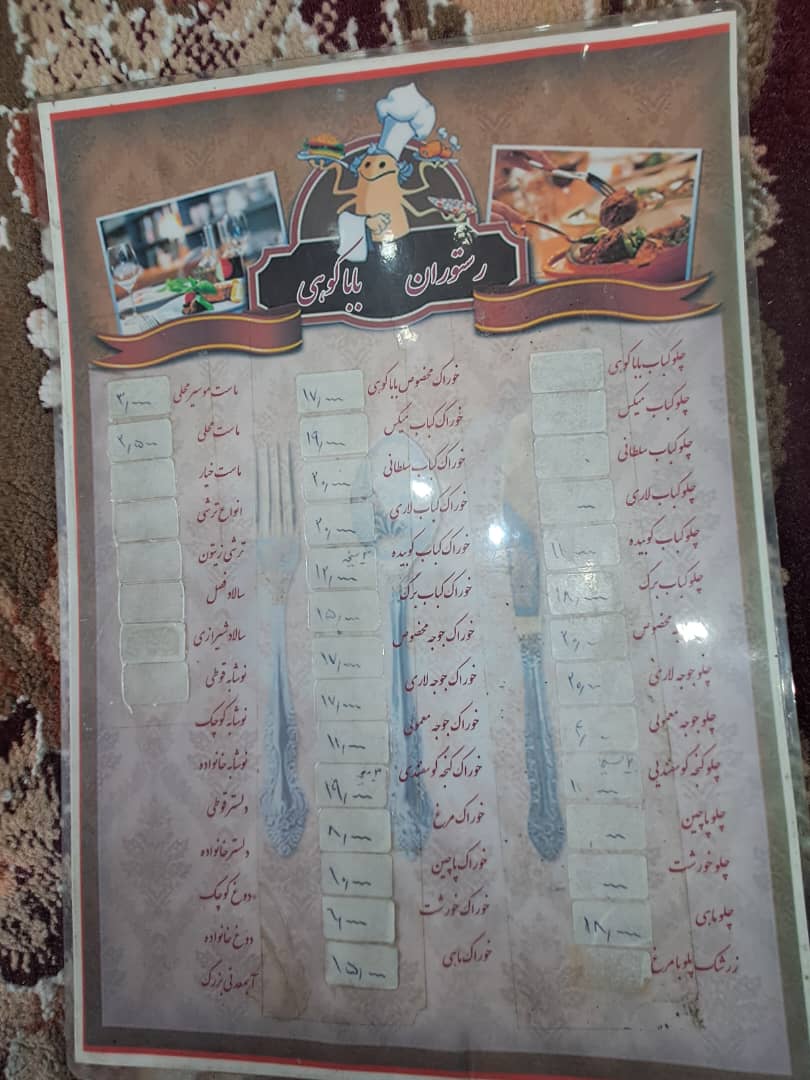 رستوران باباکوهی
چلو کباب باباکوهی
چلو کباب میکس
چلو کباب سلطانی
چلو کباب لاری
چلو کباب کوبیده
چلو کباب برگ ۱۸,۰۰۰
جوجه مخصوص
چلو جوجه لاری
چلو جوجه معمولی
چلو کنجه گوسفندی
چلو پاچین
چلو خورشت
چلو ماهی ۱۸,۰۰۰
زرشک پلو با مرغ
خوراک مخصوص باباکوهی ۱۷,۰۰۰
خوراک کباب میکس ۱۹,۰۰۰
خوراک کباب سلطانی ۲۰,۰۰۰
خوراک کباب لاری ۲۰,۰۰۰
خوراک کباب کوبیده ۲ سیخ ۱۲,۰۰۰
خوراک کباب برگ ۱۵,۰۰۰
خوراک جوجه مخصوص ۱۷,۰۰۰
خوراک جوجه لاری ۱۷,۰۰۰
خوراک جوجه معمولی ۱۱,۰۰۰
خوراک کنجه گوسفندی ۱۹,۰۰۰
خوراک مرغ ۸,۰۰۰
خوراک پاچین ۱۰,۰۰۰
خوراک خورشت ۶,۰۰۰
خوراک ماهی ۱۵,۰۰۰
ماست موسیر محلی ۳,۰۰۰
ماست محلی ۲,۵۰۰
ماست خیار
انواع ترشی
ترشی زیتون
سالاد فصل
سالاد شیرازی
نوشابه قوطی
نوشابه کوچک
نوشابه خانواده
دلستر قوطی
دلستر خانواده
دوغ کوچک
دوغ خانواده
آبمعدنی بزرگ